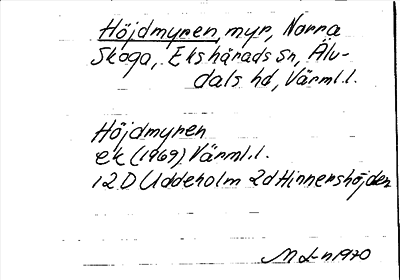 Höjdmyren, myr, Norra
Skoga, Ekshärads sn, Älv-
dals hd, Värml.l.
Höjdmyren
ek (1969) Värml.l.
12D Uddeholm 2d Hinnershöjden
M L-n 1970